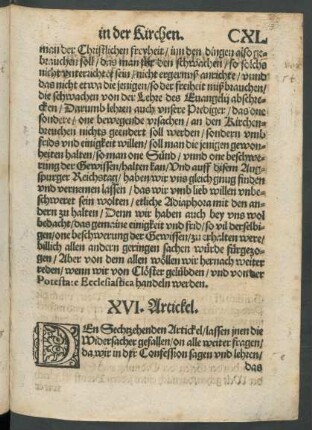 in der Kirchen. CXL
man der Christlichen freyheit / inn den dingen also ge-
brauchen soll / das man für den schwachen / so solchs
nicht vnterricht sein / nicht ergernuß anrichte / vnnd
das nicht etwa die jenigen / so der freiheit mißbrauchen /
die schwachen von der Lehre des Euangelij abschre-
cken / Darumb lehren auch vnsere Prediger / das one
sondere / one bewegende vrsachen / an den Kirchen-
breuchen nichts geendert soll werden / sondern vmb
frids vnd einigkeit willen / soll man die jenigen gewon-
heiten halten / so man one Sünd / vnnd one beschwe-
rung der Gewissen / halten kan / Vnd auff disem Aug-
spurger Reichstag / haben wir vns gleich gnug finden
vnd vernemen lassen / das wir vmb lieb willen vnbe-
schweret sein wolten / etliche Adiaphora mit den an-
dern zu halten / Denn wir haben auch bey vns wol
bedacht / das gemaine einigkeit vnd frid / so vil derselbi-
gen / one beschwerung der Gewissen / zu erhalten were /
billich allen andern geringen sachen würde fürgezo-
gen / Aber von dem allen wöllen wir hernach weiter
reden / wenn wir von Clöster gelübden / vnd von der
Potestate Ecclesiastica handeln werden.
XVI. Artickel.
DEn Sechtzehenden Artickel / lassen jnen die
Widersacher gefallen / on alle weiter fragen /
da wir in der Confession sagen vnd lehren /
das